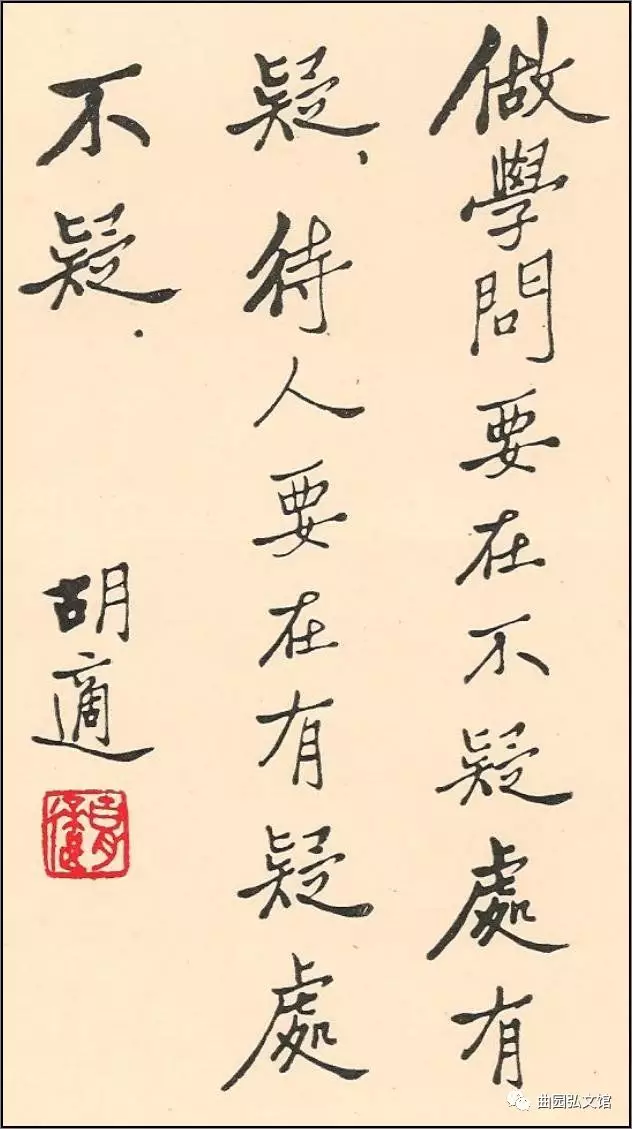 做學問要在不疑處有
疑，待人要在有疑處
不疑．
胡適
胡適
曲园弘文馆